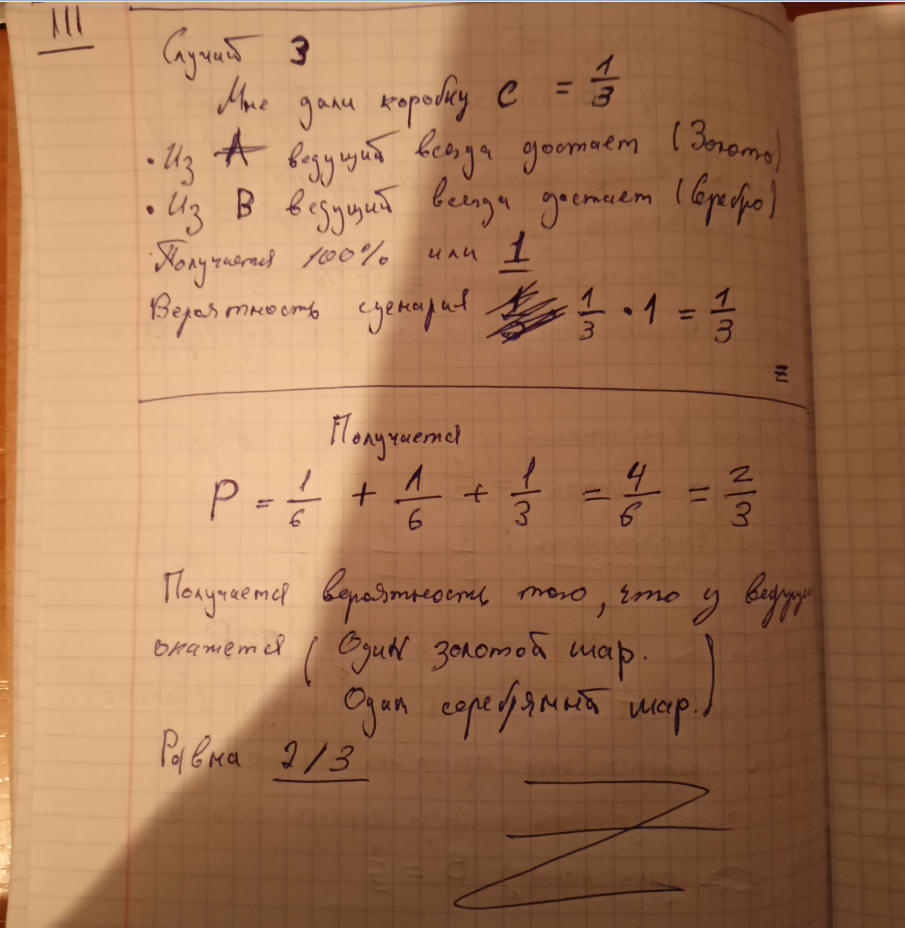 III
Случай 3
Мне дали коробку C = 1/3
• Из A ведущий всегда достает (Золото)
• Из B ведущий всегда достает (Серебро)
Получается 100% или 1
Вероятность сценария 1/3 · 1 = 1/3
=
Получается
P = 1/6 + 1/6 + 1/3 = 4/6 = 2/3
Получается вероятность того, что у ведущ
окажется ( Один золотой шар.
Один серебряный шар. )
Равна 2/3